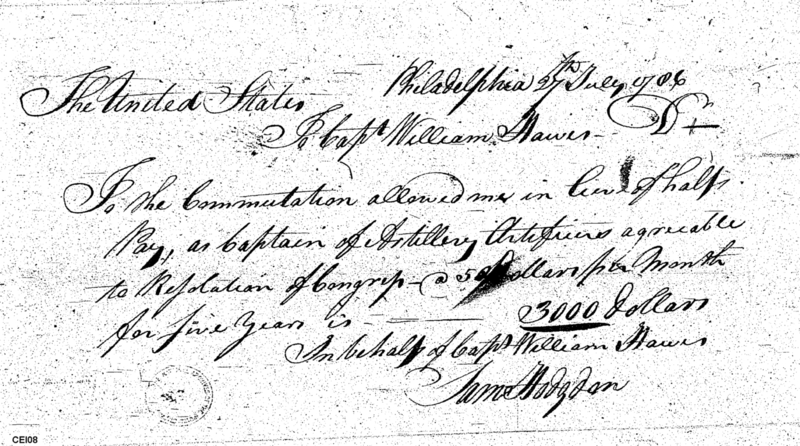 Philadelphia 27th July 1786
The United States
To Capt William Hawes - Dr
To the Commutation allowed me in lieu of half
Pay, as Captain of Artillery Artificers agreeable
to Resolution of Congress - @ 50 Dollars pr Month
for five Years is - 3000 Dollars
In behalf of Capt William Hawes
Sam Hodgdon
CEI08